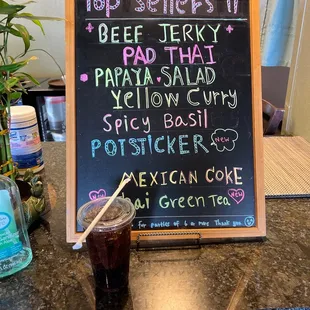 Top Sellers !!
BEEF JERKY
PAD THAI
PAPAYA SALAD
Yellow Curry
Spicy Basil
POTSTICKER New
New MEXICAN COKE
Thai Green Tea New
for parties of 6 or more Thank you